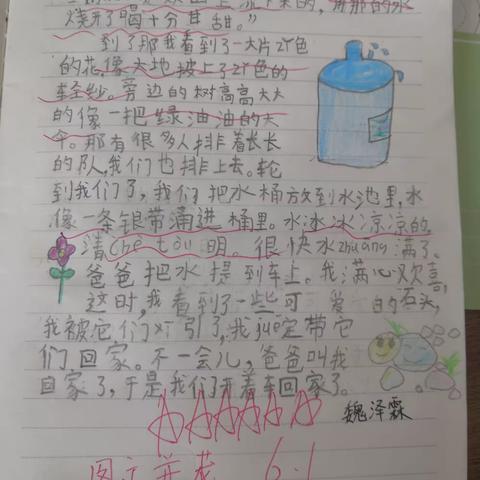 烧开了喝十分甘甜。”
到了那我看到了一大片红色
的花,像大地披上了红色的
轻纱。旁边的树高高大大
的像一把绿油油的大
伞。那有很多人排着长长
的队,我们也排上去。轮
到我们了,我们把水桶放到水池里,水
像一条银带涌进桶里。水冰冰凉凉的,
清che tou明 很快水zhuang满了。
爸爸把水提到车上。我满心欢喜,
这时,我看到了一些可爱的石头,
我被它们吸引了,我jue定带它
们回家。不一会儿,爸爸叫我
回家了,于是我们开着车回家了。
魏泽霖
图文并茂 6.1